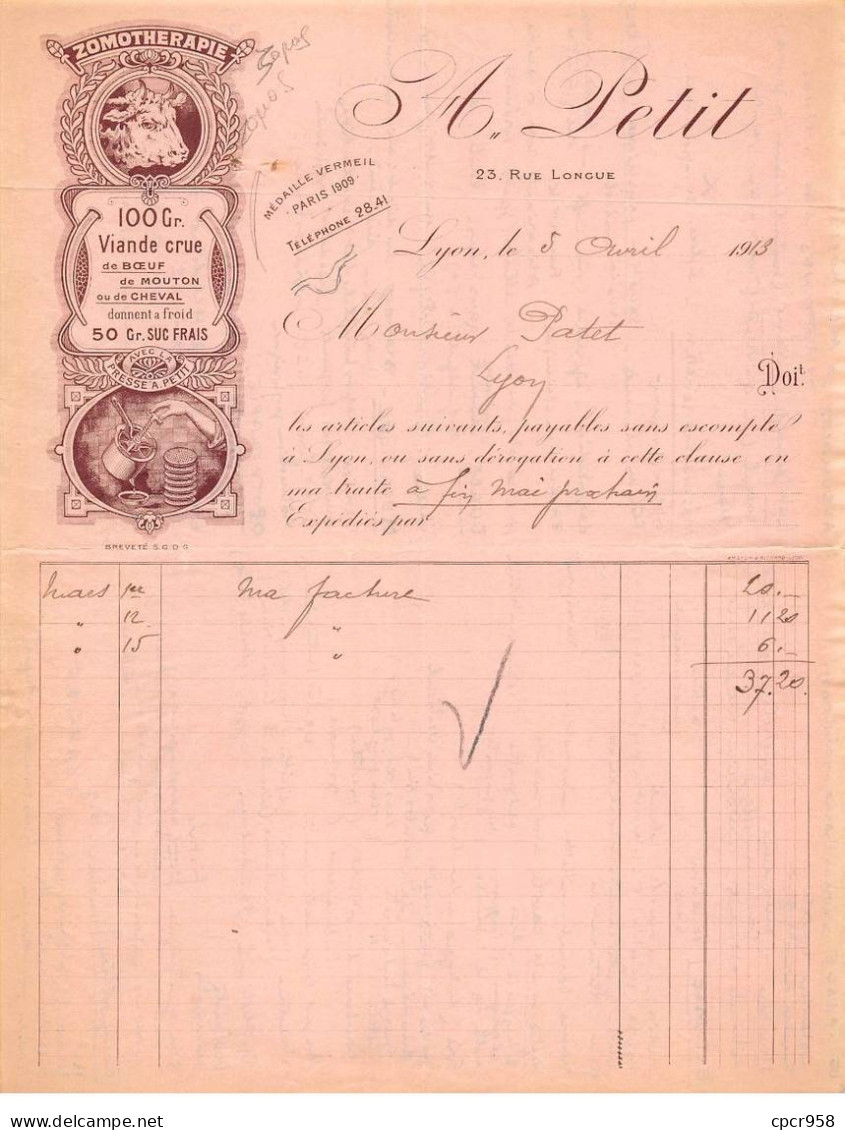 ZOMOTHERAPIE
A. Petit
23, Rue Longue
MÉDAILLE VERMEIL
PARIS 1909
TÉLÉPHONE 28.41
100 Gr.
Viande crue
de BŒUF
de MOUTON
ou de CHEVAL
donnent a froid
50 Gr. SUC FRAIS
AVEC LA
PRESSE A. PETIT
BREVETÉ S.G.D.G
Lyon, le 5 Avril 1913
Monsieur Patet
Lyon
Doit
les articles suivants, payables sans escompte
à Lyon, ou sans dérogation à cette clause en
ma traite à fin Mai prochain
Expédiés par
Mars 1er Ma facture 20.-
" 12 " 11 20
" 15 " 6.-
37.20.
© cpcr958